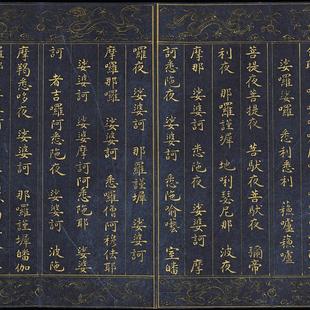 娑囉娑囉 悉利悉利 蘇嚧蘇嚧
菩提夜菩提夜 菩馱夜菩馱夜 彌帝
利夜 那囉謹墀 地唎瑟尼那 波夜
摩那 娑婆訶 悉陁夜 娑婆訶 摩
訶悉陁夜 娑婆訶 悉陁喻藝 室皤
囉夜 娑婆訶 那囉謹墀 娑婆訶
摩囉那囉 娑婆訶 悉囉僧阿穆佉耶
娑婆訶 娑婆摩訶阿悉陁耶 娑婆
訶 者吉囉阿悉陁夜 娑婆訶 波陁
摩羯悉哆夜 娑婆訶 那囉謹墀皤伽